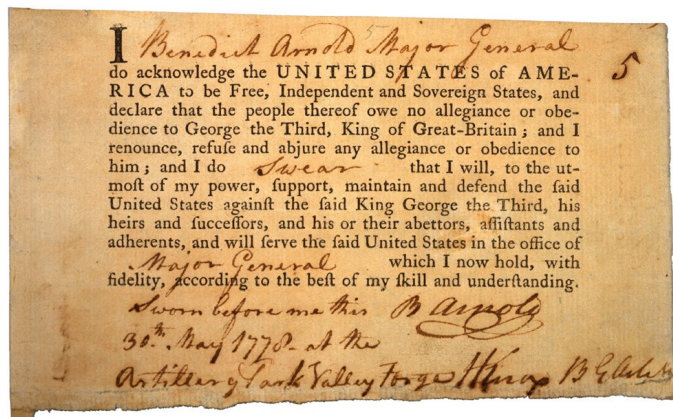 I Benedict Arnold Major General
do acknowledge the UNITED STATES of AME-
RICA to be Free, Independent and Sovereign States, and
declare that the people thereof owe no allegiance or obe-
dience to George the Third, King of Great-Britain; and I
renounce, refuſe and abjure any allegiance or obedience to
him; and I do swear that I will, to the ut-
moſt of my power, ſupport, maintain and defend the ſaid
United States againſt the ſaid King George the Third, his
heirs and ſucceſſors, and his or their abettors, aſſiſtants and
adherents, and will ſerve the ſaid United States in the office of
Major General which I now hold, with
fidelity, according to the beſt of my ſkill and underſtanding.
Sworn before me this B Arnold
30th May 1778 - at the
Artillery Park Valley Forge HKnox B G Art
5